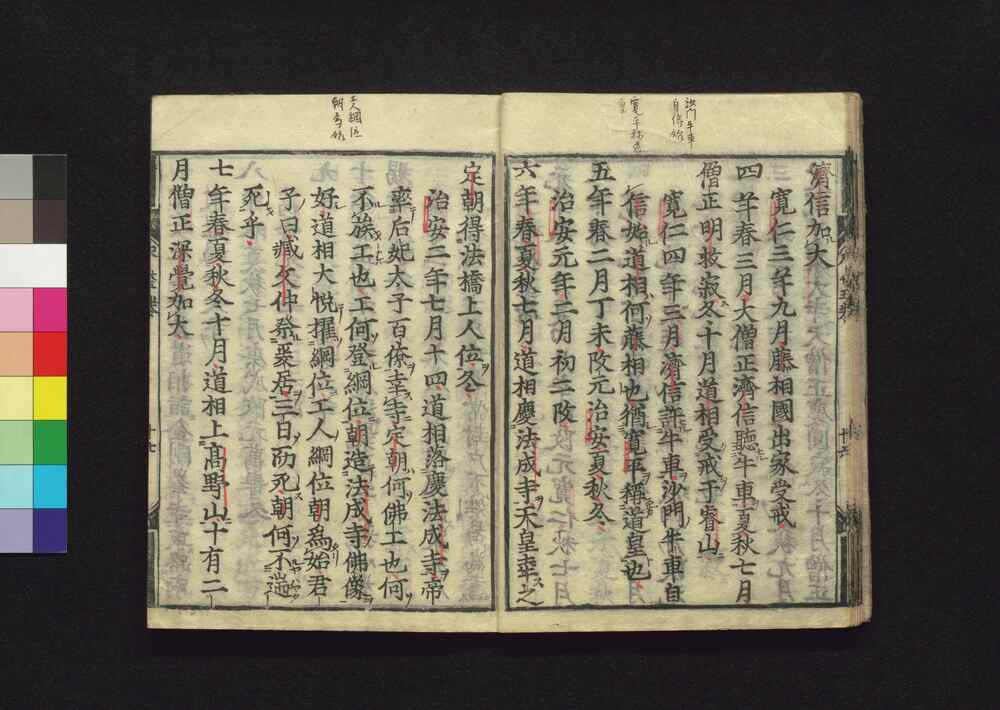 濟信加大
寛仁三年九月藤相國出家受戒
四年春三月大僧正濟信聽牛車夏秋七月
僧正明救寂冬十月道相受戒于睿山
寛仁四年三月濟信許牛車沙門牛車自
信始道相何藤相也猶寛平稱道皇也
五年春二月丁未改元治安夏秋冬
治安元年二月初二改
六年春夏秋七月道相慶法成寺天皇幸之
定朝得法橋上人位冬
治安二年七月十四道相落慶法成寺帝
率后妃太子百僚幸寺定朝何佛工也何
不族工也工何登綱位朝造法成寺佛像
好道相大悦擢綱位工人綱位朝爲始君
子曰臧文仲祭爰居三日防死朝何不遄
死乎
七年春夏秋冬十月道相上髙野山十有二
月僧正深覺加大